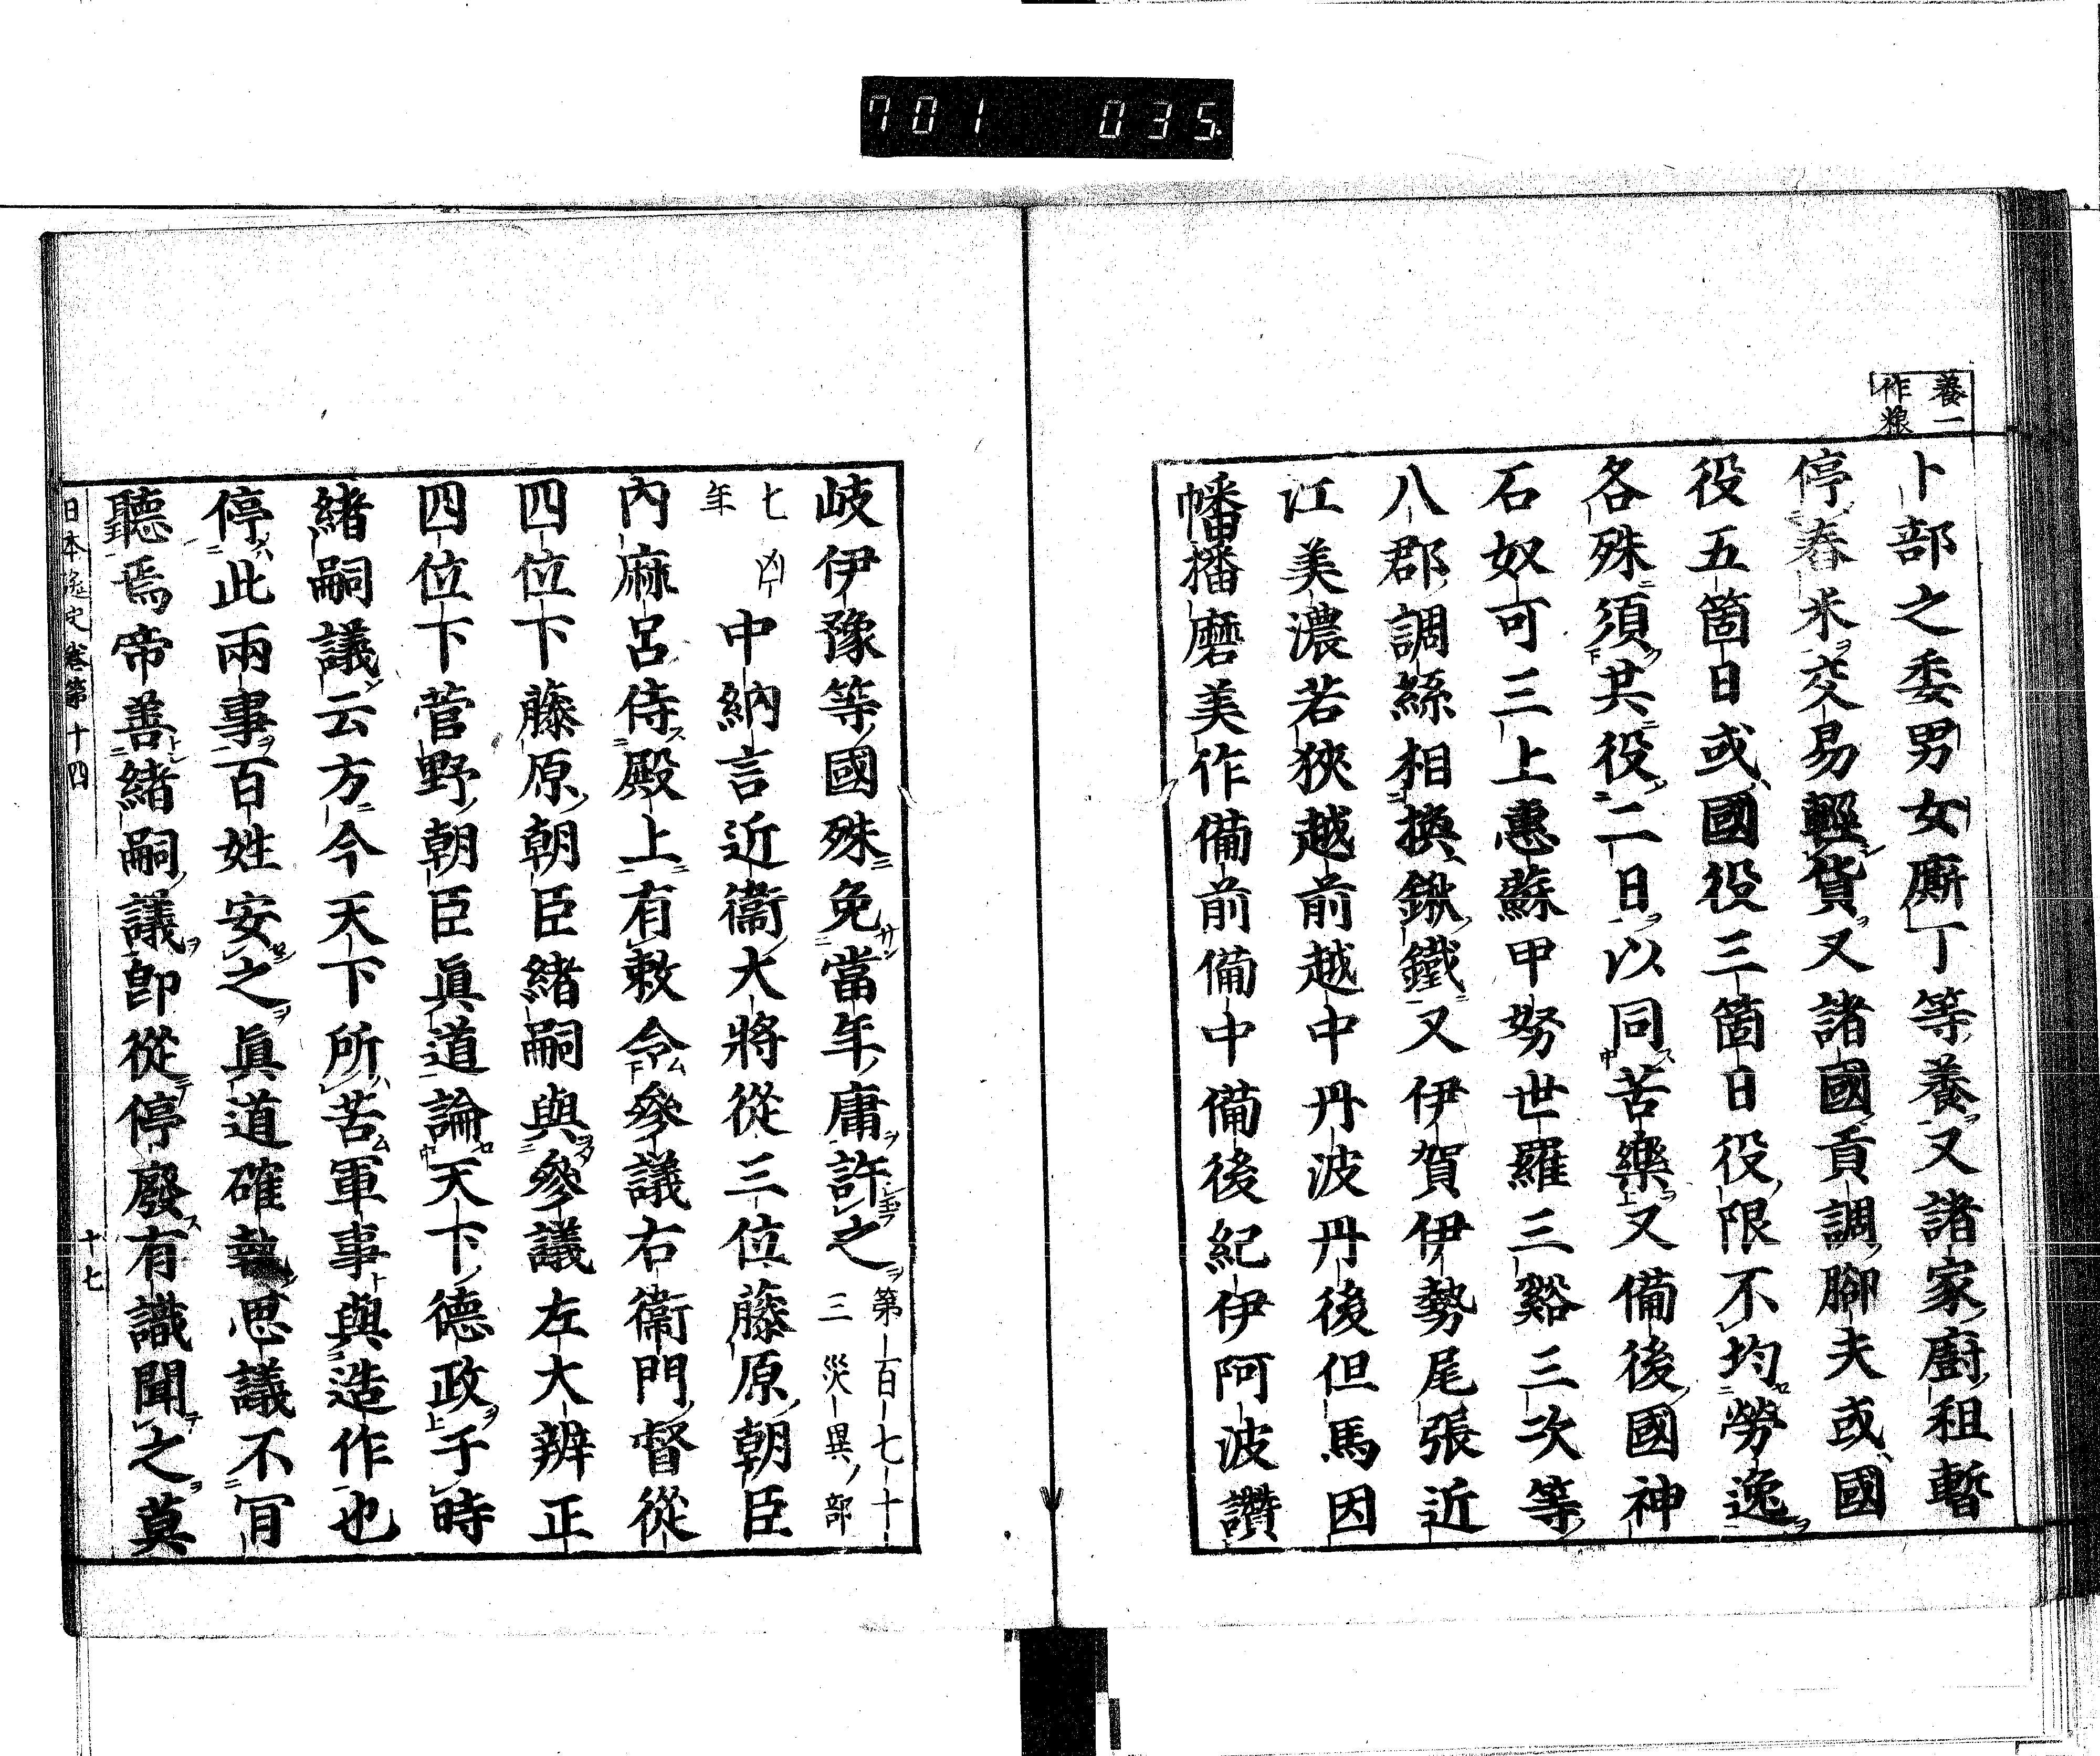 701 035
養一
作粮
卜部之委男女厮丁等養又諸家廚租暫
停舂米交易輕貨又諸國貢調脚夫或國
役五箇日或國役三箇日役限不均勞逸
各殊須共役二日以同苦樂又備後國神
石奴可三上惠蘇甲努世羅三谿三次等
八郡調絲相換鍬鐵又伊賀伊勢尾張近
江美濃若狹越前越中丹波丹後但馬因
幡播磨美作備前備中備後紀伊阿波讚
岐伊豫等國殊免當年庸許之第百七十
三災異部
七年
中納言近衞大將從三位藤原朝臣
內麻呂侍殿上有敕令參議右衞門督從
四位下藤原朝臣緒嗣與參議左大辨正
四位下菅野朝臣眞道論天下德政于時
緒嗣議云方今天下所苦軍事與造作也
停此兩事百姓安之眞道確執思議不肎
聽焉帝善緒嗣議卽從停廢有識聞之莫
日本逸史卷第十四
十七